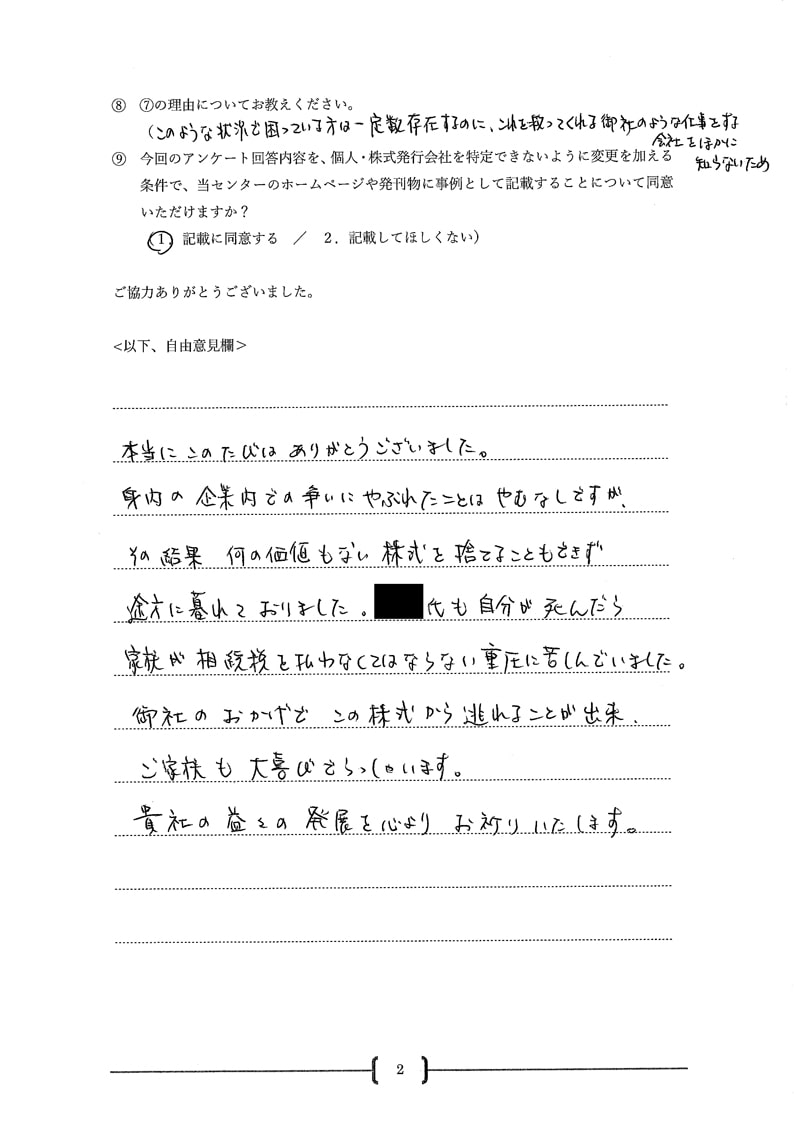 ⑧ ⑦の理由についてお教えください。
(このような状況で困っている方は一定数存在するのに、これを救ってくれる御社のような仕事をする
会社をほかに
知らないため
⑨ 今回のアンケート回答内容を、個人・株式発行会社を特定できないように変更を加える
条件で、当センターのホームページや発刊物に事例として記載することについて同意
いただけますか？
(1 記載に同意する ／ 2．記載してほしくない)
ご協力ありがとうございました。
<以下、自由意見欄>
本当にこのたびは ありがとうございました。
身内の企業内での争いにやぶれたことは やむなしですが、
その結果 何の価値もない 株式を捨てることもできず
途方に暮れて おりました。 氏も自分が死んだら
家族が相続税を払わなくてはならない重圧に苦しんでいました。
御社の おかげで この株式から逃れることが出来、
ご家族も 大喜びでらっしゃいます。
貴社の益々の発展を心より お祈りいたします。
2